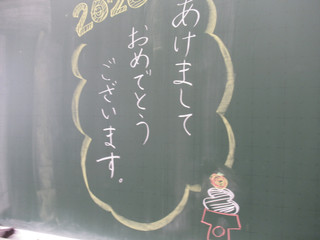 2020
あけまして
おめでとう
ございます。